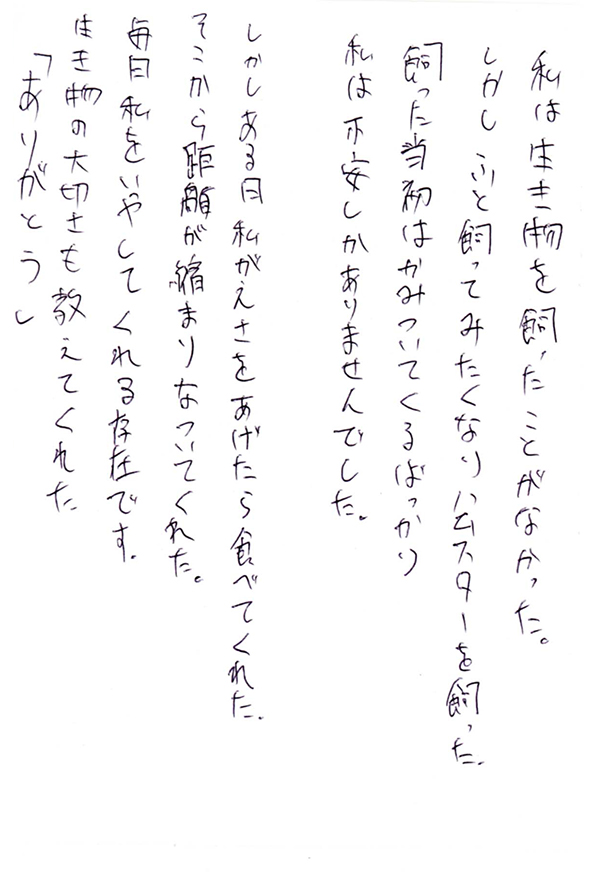 私は生き物を飼ったことがなかった。
しかしふと飼ってみたくなりハムスターを飼った。
飼った当初はかみついてくるばっかり
私は不安しかありませんでした。
しかしある日私がえさをあげたら食べてくれた。
そこから距離が縮まりなついてくれた。
毎日私をいやしてくれる存在です。
生き物の大切さも教えてくれた
「ありがとう」